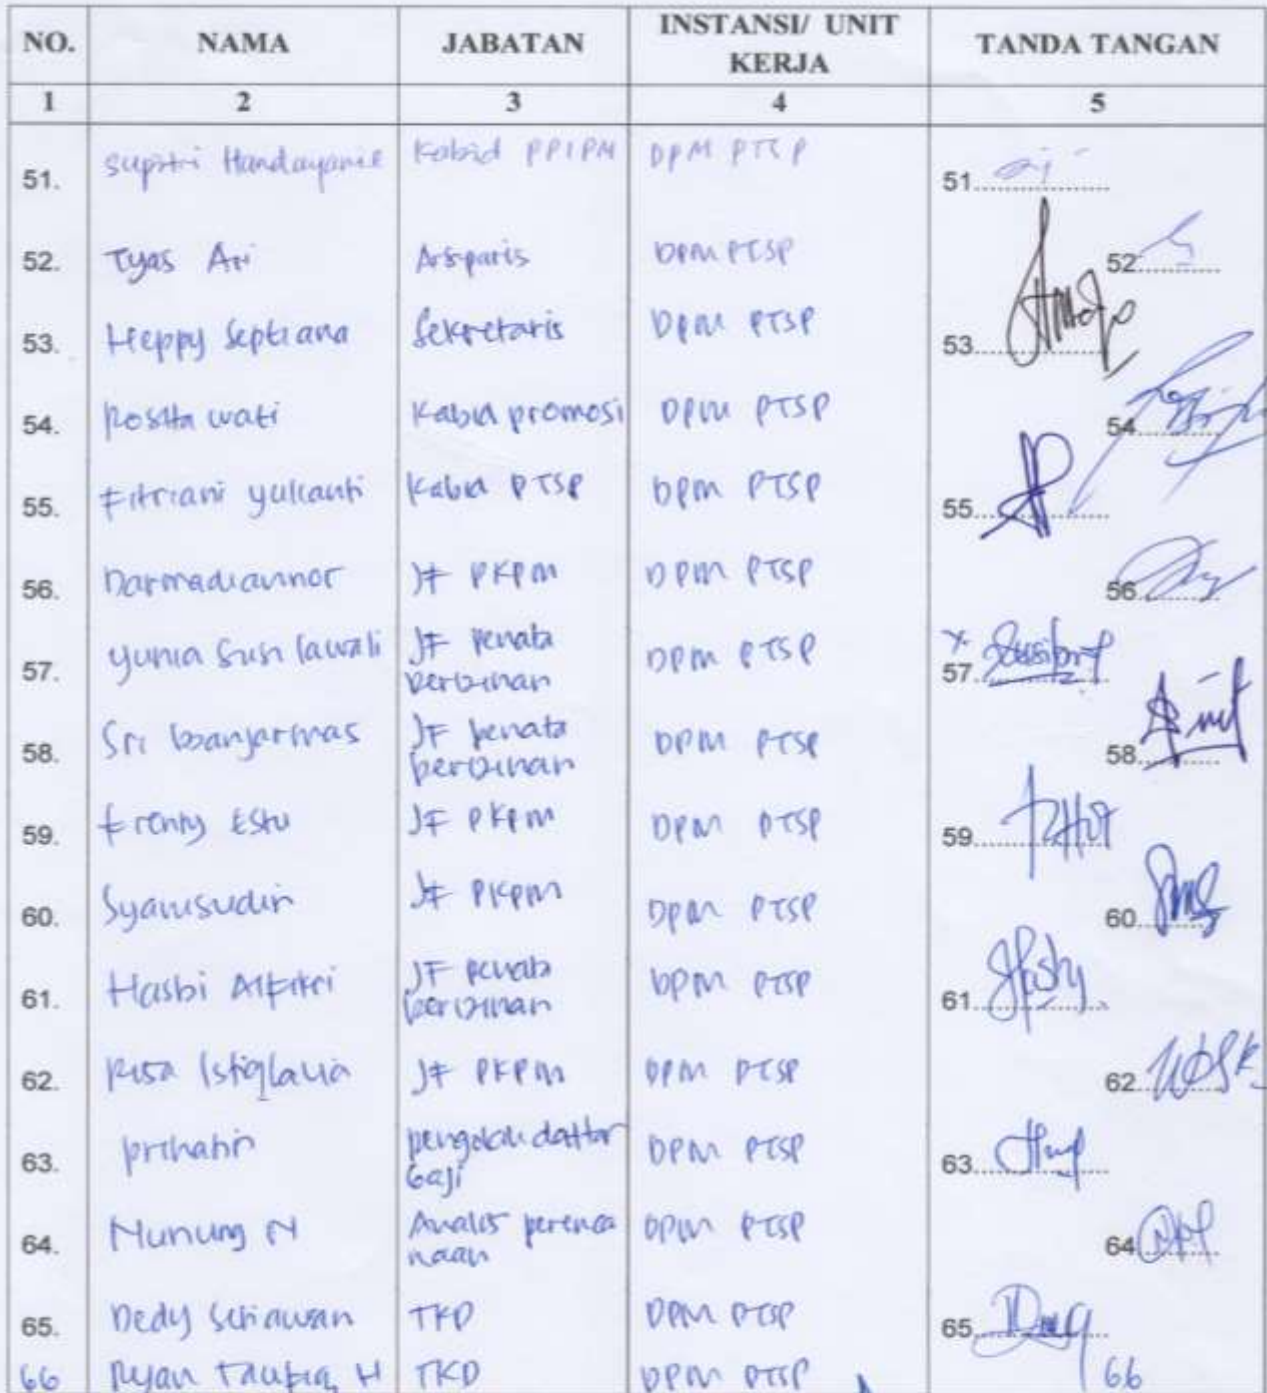 NO. NAMA JABATAN INSTANSI/ UNIT KERJA TANDA TANGAN
1 2 3 4 5
51. Supitri Handayanie Kabid PPIPM DPM PTSP 51
52. Tyas Ari Arsiparis DPM PTSP 52
53. Heppy Septiana Sekretaris DPM PTSP 53
54. Rosita wati Kabid promosi DPM PTSP 54
55. Fitriani yulianti Kabid PTSP DPM PTSP 55
56. Darmadiannor JF PKPM DPM PTSP 56
57. yunia Susilawati JF penata perizinan DPM PTSP 57
58. Sri banjarmas JF penata perizinan DPM PTSP 58
59. Frenty Estu JF PKPM DPM PTSP 59
60. Syamsudin JF PKPM DPM PTSP 60
61. Hasbi Alfitri JF penata perizinan DPM PTSP 61
62. Risa Istiqlalia JF PKPM DPM PTSP 62
63. prihatin pengolah daftar Gaji DPM PTSP 63
64. Nunung N Analis perenca naan DPM PTSP 64
65. Dedy Setiawan TKD DPM PTSP 65
66 Ryan Taufiq H TKD DPM PTSP 66